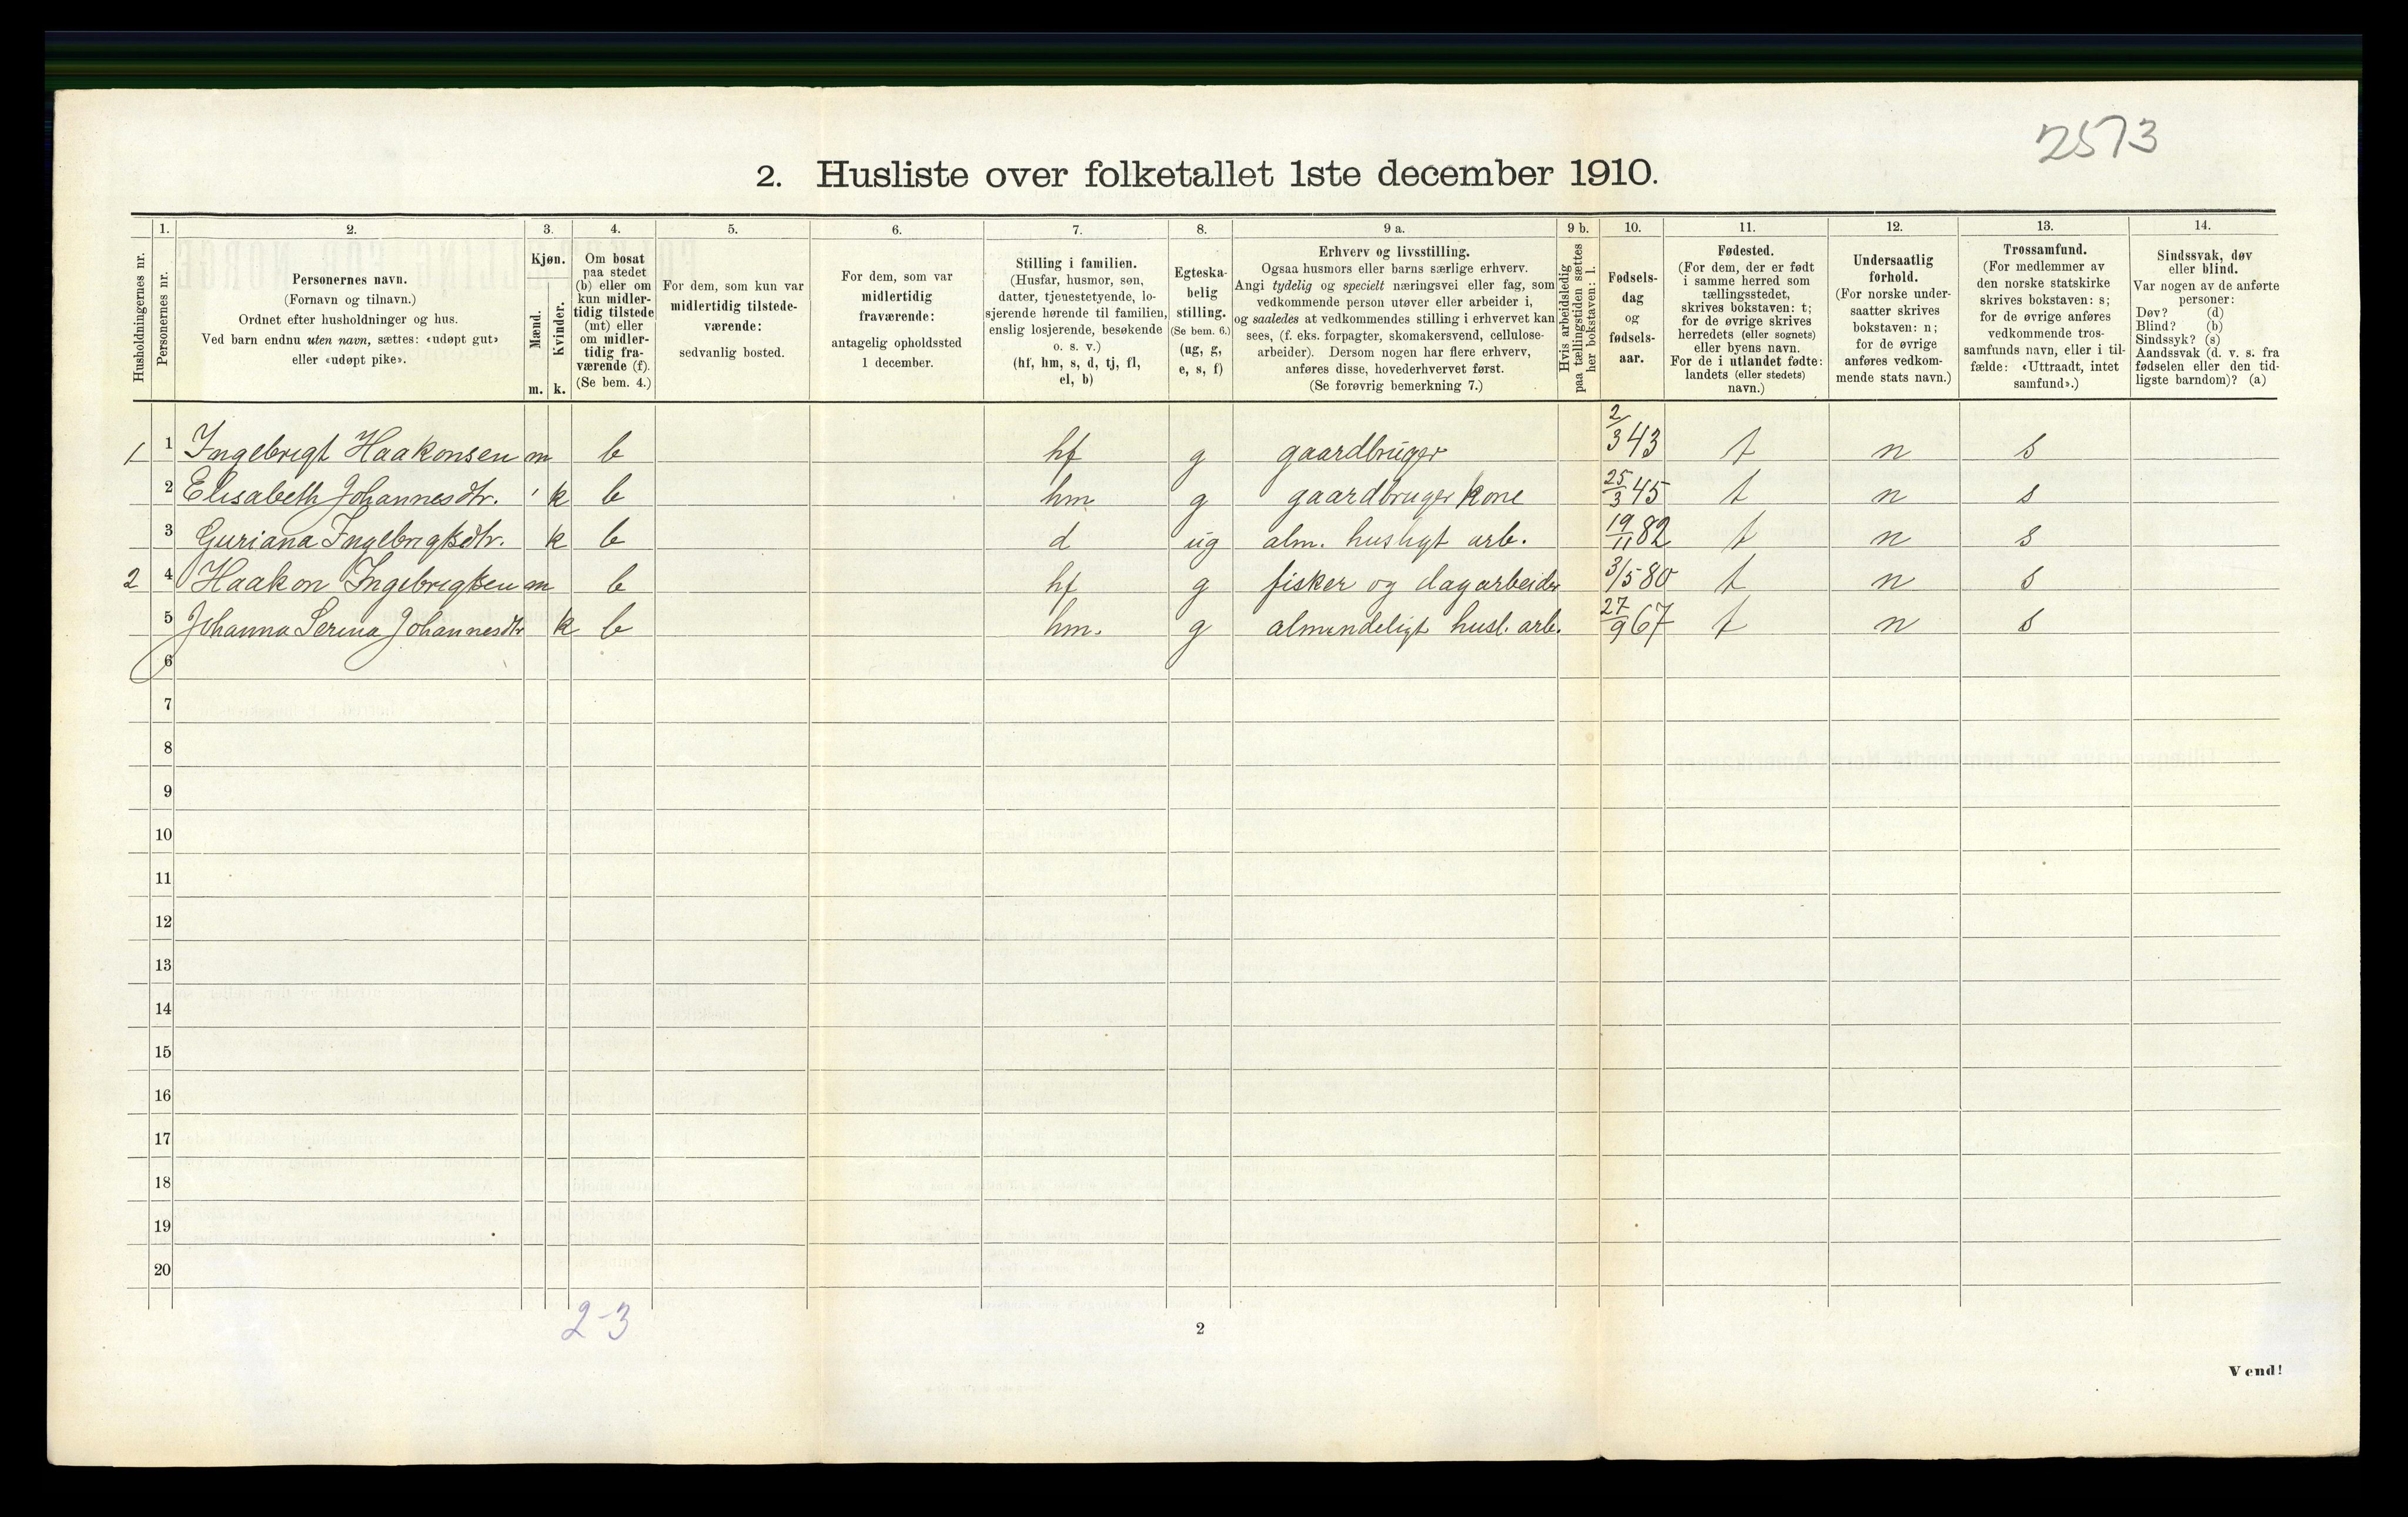 2573
2. Husliste over folketallet 1ste december 1910.
Husholdningernes nr.
1.
Personernes nr.
2.
Personernes navn.
(Fornavn og tilnavn.)
Ordnet efter husholdninger og hus.
Ved barn endnu uten navn, sættes: «udøpt gut»
eller «udøpt pike».
3.
Kjøn.
Mænd.
m.
Kvinder.
k.
4.
Om bosat
paa stedet
(b) eller om
kun midler-
tidig tilstede
(mt) eller
om midler-
tidig fra-
værende (f).
(Se bem. 4.)
5.
For dem, som kun var
midlertidig tilstede-
værende:
sedvanlig bosted.
6.
For dem, som var
midlertidig
fraværende:
antagelig opholdssted
1 december.
7.
Stilling i familien.
(Husfar, husmor, søn,
datter, tjenestetyende, lo-
sjerende hørende til familien,
enslig losjerende, besøkende
o. s. v.)
(hf, hm, s, d, tj, fl,
el, b)
8.
Egteska-
belig
stilling.
(Se bem. 6.)
(ug, g,
e, s, f)
9 a.
Erhverv og livsstilling.
Ogsaa husmors eller barns særlige erhverv.
Angi tydelig og specielt næringsvei eller fag, som
vedkommende person utøver eller arbeider i,
og saaledes at vedkommendes stilling i erhvervet kan
sees, (f. eks. forpagter, skomakersvend, cellulose-
arbeider). Dersom nogen har flere erhverv,
anføres disse, hovederhvervet først.
(Se forøvrig bemerkning 7.)
9 b.
Hvis arbeidsledig
paa tællingstiden sættes
her bokstaven: l.
10.
Fødsels-
dag
og
fødsels-
aar.
11.
Fødested.
(For dem, der er født
i samme herred som
tællingsstedet,
skrives bokstaven: t;
for de øvrige skrives
herredets (eller sognets)
eller byens navn.
For de i utlandet fødte:
landets (eller stedets)
navn.)
12.
Undersaatlig
forhold.
(For norske under-
saatter skrives
bokstaven: n;
for de øvrige
anføres vedkom-
mende stats navn.)
13.
Trossamfund.
(For medlemmer av
den norske statskirke
skrives bokstaven: s;
for de øvrige anføres
vedkommende tros-
samfunds navn, eller i til-
fælde: «Uttraadt, intet
samfund».)
14.
Sindssvak, døv
eller blind.
Var nogen av de anførte
personer:
Døv? (d)
Blind? (b)
Sindssyk? (s)
Aandssvak (d. v. s. fra
fødselen eller den tid-
ligste barndom)? (a)
1 1 Ingebrigt Haakonsen m b hf g gaardbruger 2/3 43 t n s
2 Elisabeth Johannesdtr. k b hm g gaardbruger kone 25/3 45 t n s
3 Guriana Ingebrigtsdtr. k b d ug alm. husligt arb. 19/11 82 t n s
2 4 Haakon Ingebrigtsen m b hf g fisker og dagarbeider 3/5 80 t n s
5 Johanna Serina Johannesdtr k b hm. g almindeligt husl. arb. 27/9 67 t n s
6
7
8
9
10
11
12
13
14
15
16
17
18
19
20
2-3
2
Vend!